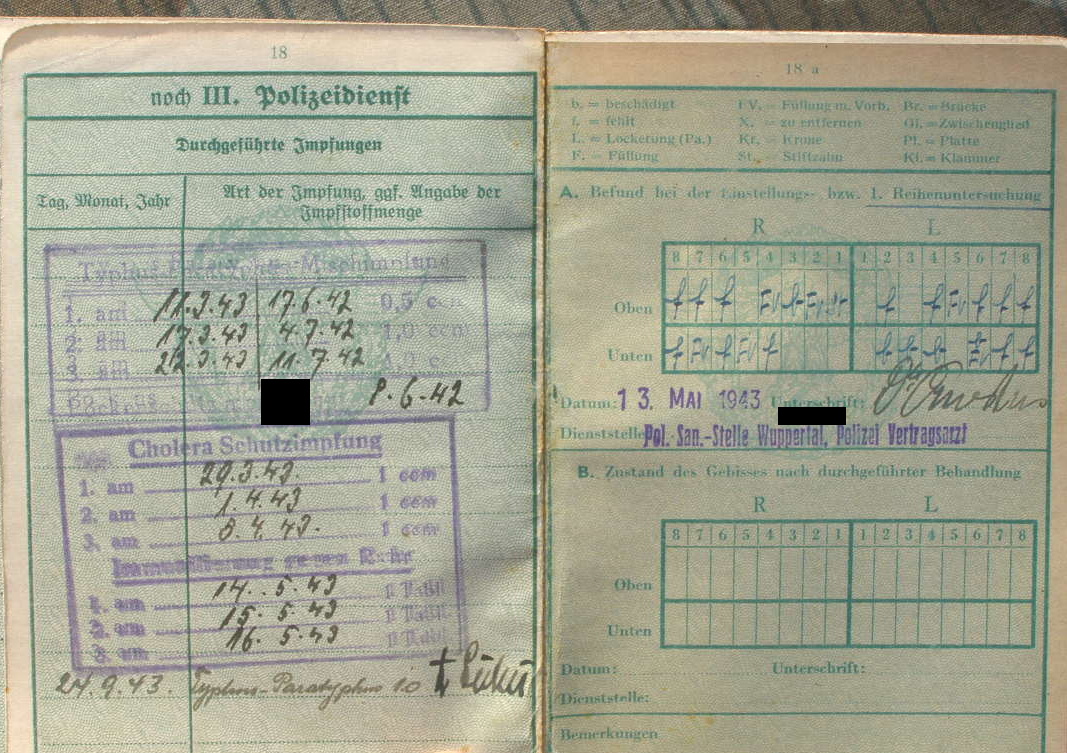 18
noch III. Polizeidienst
Durchgeführte Impfungen
Tag, Monat, Jahr
Art der Impfung, ggf. Angabe der Impfstoffmenge
Typhus-Paratyphus-Mischimpfung
1. am 11.3.43 17.6.42 0,5 ccm
2. am 17.3.43 4.7.42 1,0 ccm
3. am 22.3.43 11.7.42 1,0 c
8.6.42
Cholera Schutzimpfung
1. am 29.3.43. 1 ccm
2. am 1.4.43 1 ccm
3. am 8.4.43. 1 ccm
Immunisierung gegen Ruhr
1. am 14.5.43
2. am 15.5.43
3. am 16.5.43
24.9.43. Typhus-Paratyphus 1,0
18 a
b. = beschädigt FV. = Füllung m. Vorb. Br. = Brücke
f. = fehlt X. = zu entfernen Gl. = Zwischenglied
L. = Lockerung (Pa.) Kr. = Krone Pl. = Platte
F. = Füllung St. = Stiftzahn Kl. = Klammer
A. Befund bei der Einstellungs- bzw. 1. Reihenuntersuchung
R L
8 7 6 5 4 3 2 1 1 2 3 4 5 6 7 8
Oben
Unten
Datum: 13. MAI 1943 Unterschrift:
Dienststelle Pol. San.-Stelle Wuppertal, Polizei Vertragsarzt
B. Zustand des Gebisses nach durchgeführter Behandlung
R L
8 7 6 5 4 3 2 1 1 2 3 4 5 6 7 8
Oben
Unten
Datum: Unterschrift:
Dienststelle:
Bemerkungen